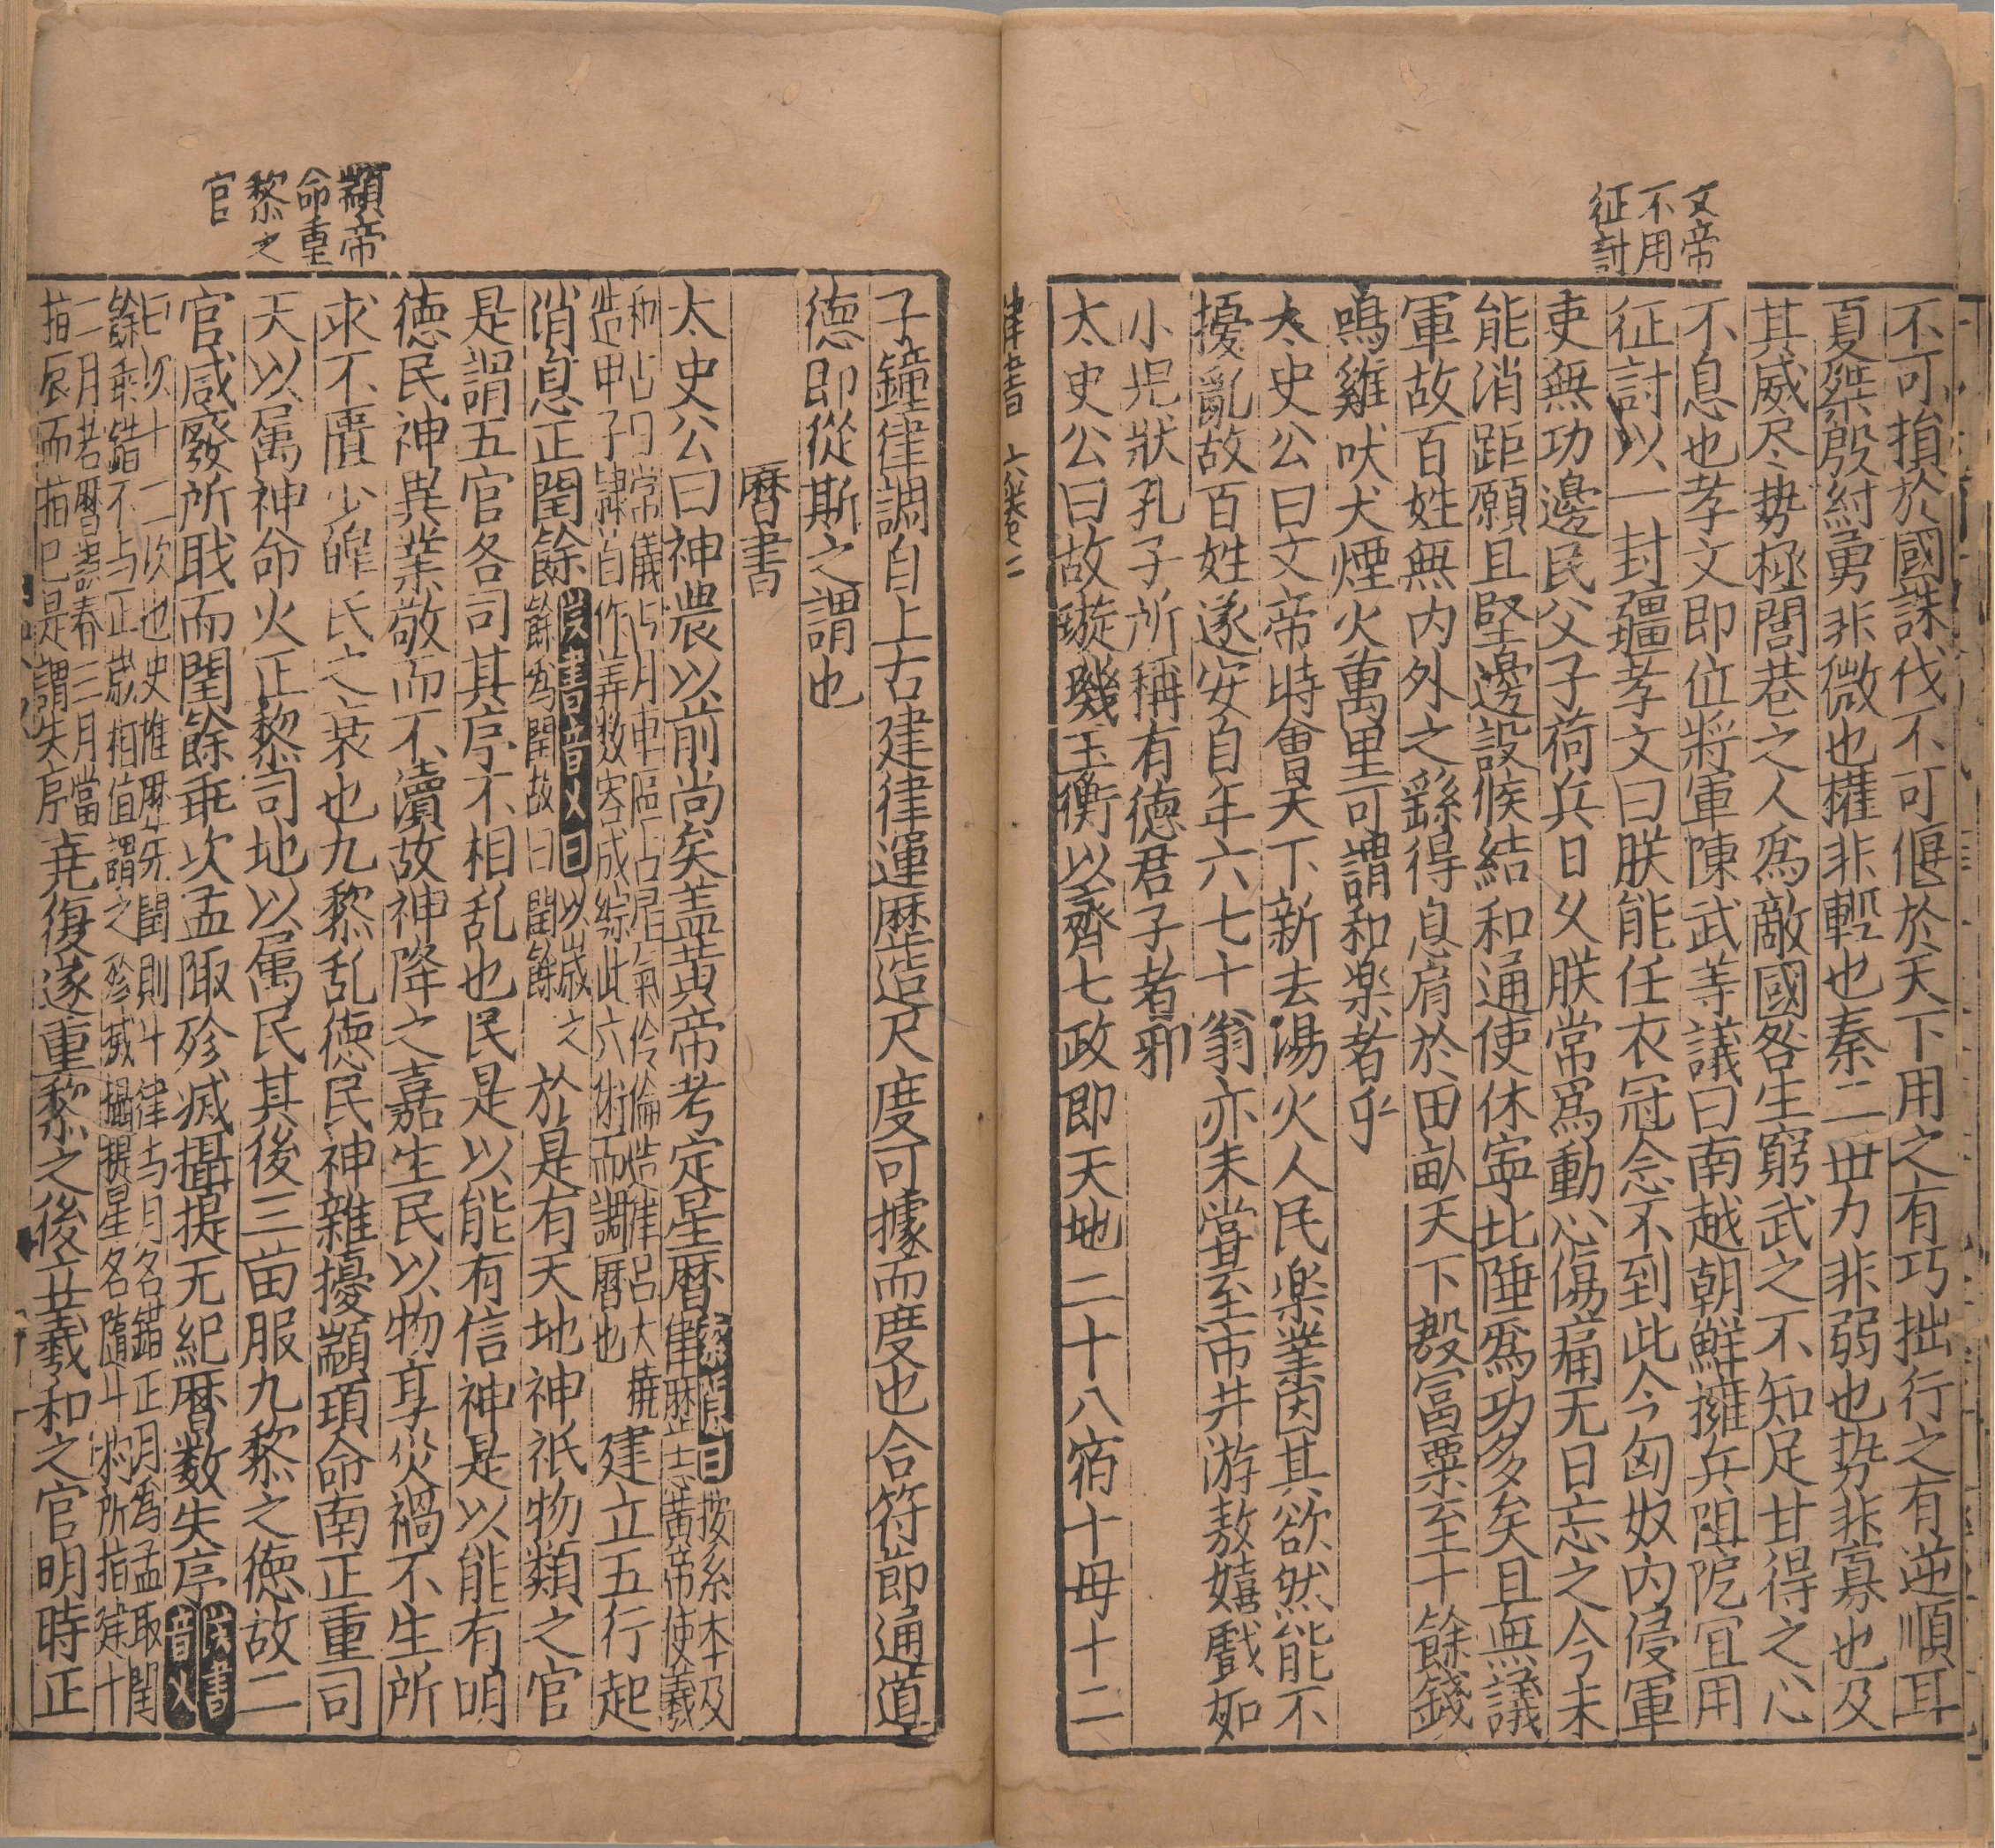 文帝
不用
征討
不可捐於國誅伐不可偃於天下用之有巧拙行之有逆順耳
夏桀殷紂勇非微也權非輕也秦二世力非弱也势非寡也及
其威尽势極閭巷之人爲敵國咎生窮武之不知足甘得之心
不息也孝文即位將軍陳武等議曰南越朝鮮擁兵阻阨宜用
征討以一封疆孝文曰朕能任衣冠念不到此今匈奴內侵軍
吏無功邊民父子荷兵日久朕常爲動心傷痛无日忘之今未
能消距願且堅邊設候結和通使休寧北陲爲功多矣且無議
軍故百姓無內外之繇得息肩於田畝天下殷冨粟至十餘錢
鳴雞吠犬煙火萬里可謂和樂者乎
太史公曰文帝時會天下新去湯火人民楽業因其欲然能不
擾亂故百姓遂安自年六七十翁亦未嘗至市井游敖嬉戲如
小児狀孔子所稱有德君子者邪
太史公曰故璇璣玉衡以齊七政即天地二十八宿十母十二
律書 六卷二
子鐘律調自上古建律運歴造尺度可據而度也合符節通道
德即從斯之謂也
曆書
太史公曰神農以前尚矣盖黄帝考定星曆索隐曰按系本及律歴志黄帝使羲
和占日常儀占月車區占星氣伶倫造律呂大橈造甲子隷首作筭数容成綜此六術而調曆也建立五行起
消息正閏餘漢書音义曰以嵗之餘為閏故曰閏餘於是有天地神祇物類之官
是謂五官各司其序不相乱也民是以能有信神是以能有明
德民神異業敬而不瀆故神降之嘉生民以物享災禍不生所
求不匱少皥氏之衰也九黎乱德民神雜擾顓頊命南正重司
天以属神命火正黎司地以属民其後三苗服九黎之德故二
官咸廢所職而閏餘乖次孟陬殄滅攝提无紀曆数失序漢書音义
曰次十二次也史推歴失閏則斗律与月名錯正月為孟陬閏
餘乖錯不与正嵗相值謂之殄滅攝提星名隨斗杓所指建十
二月若曆誤春三月當指辰而指巳是謂失序堯復遂重黎之後立羲和之官明時正
顓帝
命重
黎之
官